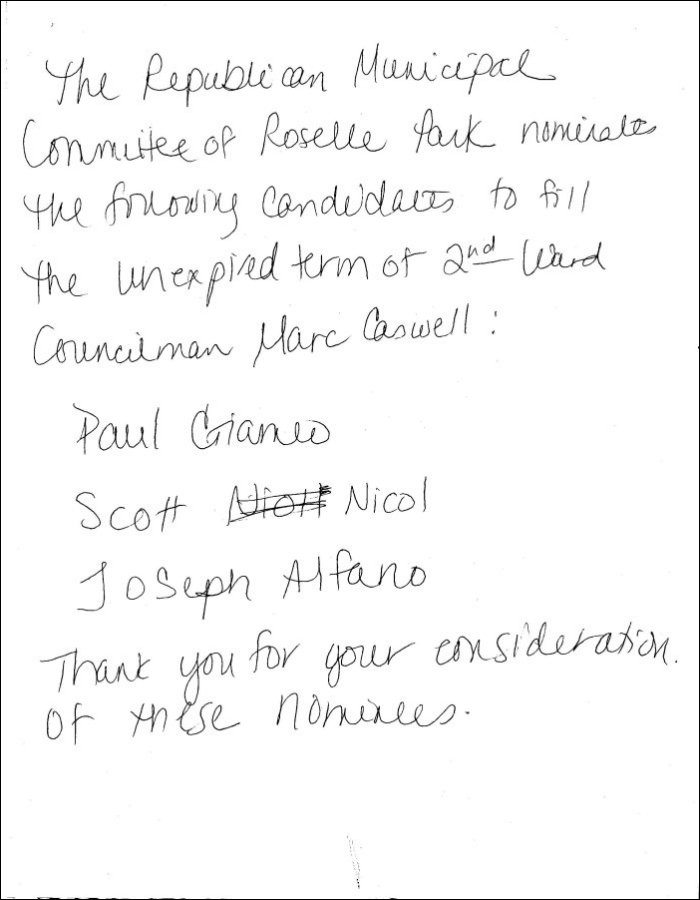 The Republican Municipal
Committee of Roselle Park nominates
the following candidates to fill
the unexpired term of 2nd Ward
Councilman Marc Caswell:
Paul Gianeo
Scott Nicol
Joseph Alfano
Thank you for your consideration.
of these nominees.